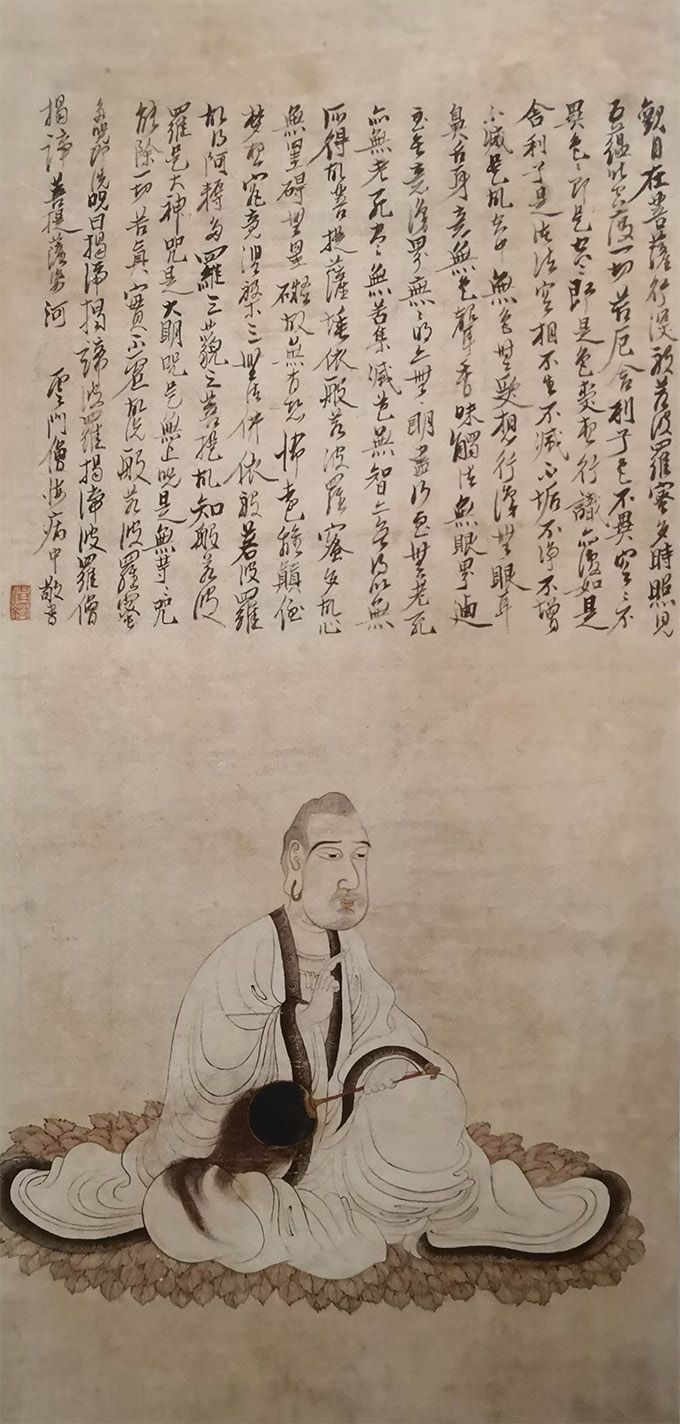 觀自在菩薩行深般若波羅蜜多時照見
五蘊皆空度一切苦厄舍利子色不異空〻不
異色〻即是空〻即是色受想行識亦復如是
舍利子是諸法空相不生不滅不垢不淨不增
不減是故空中無色無受想行識無眼耳
鼻舌身意無色聲香味觸法無眼界迺
至無意識界無〻明亦無明盡乃至無老死
亦無老死盡無苦集滅道無智亦無得以無
所得故菩提薩埵依般若波羅蜜多故心
無罣礙無罣礙故無有恐怖遠離顛倒
夢想究竟涅槃三世諸佛依般若波羅
故得阿耨多羅三藐三菩提故知般若波
羅是大神咒是大明咒是無上咒是無等〻咒
能除一切苦真實不虛故說般若波羅蜜
多咒即說咒曰揭諦揭諦波羅揭諦波羅僧
揭諦菩提薩婆訶 雲門僧悔病中敬書